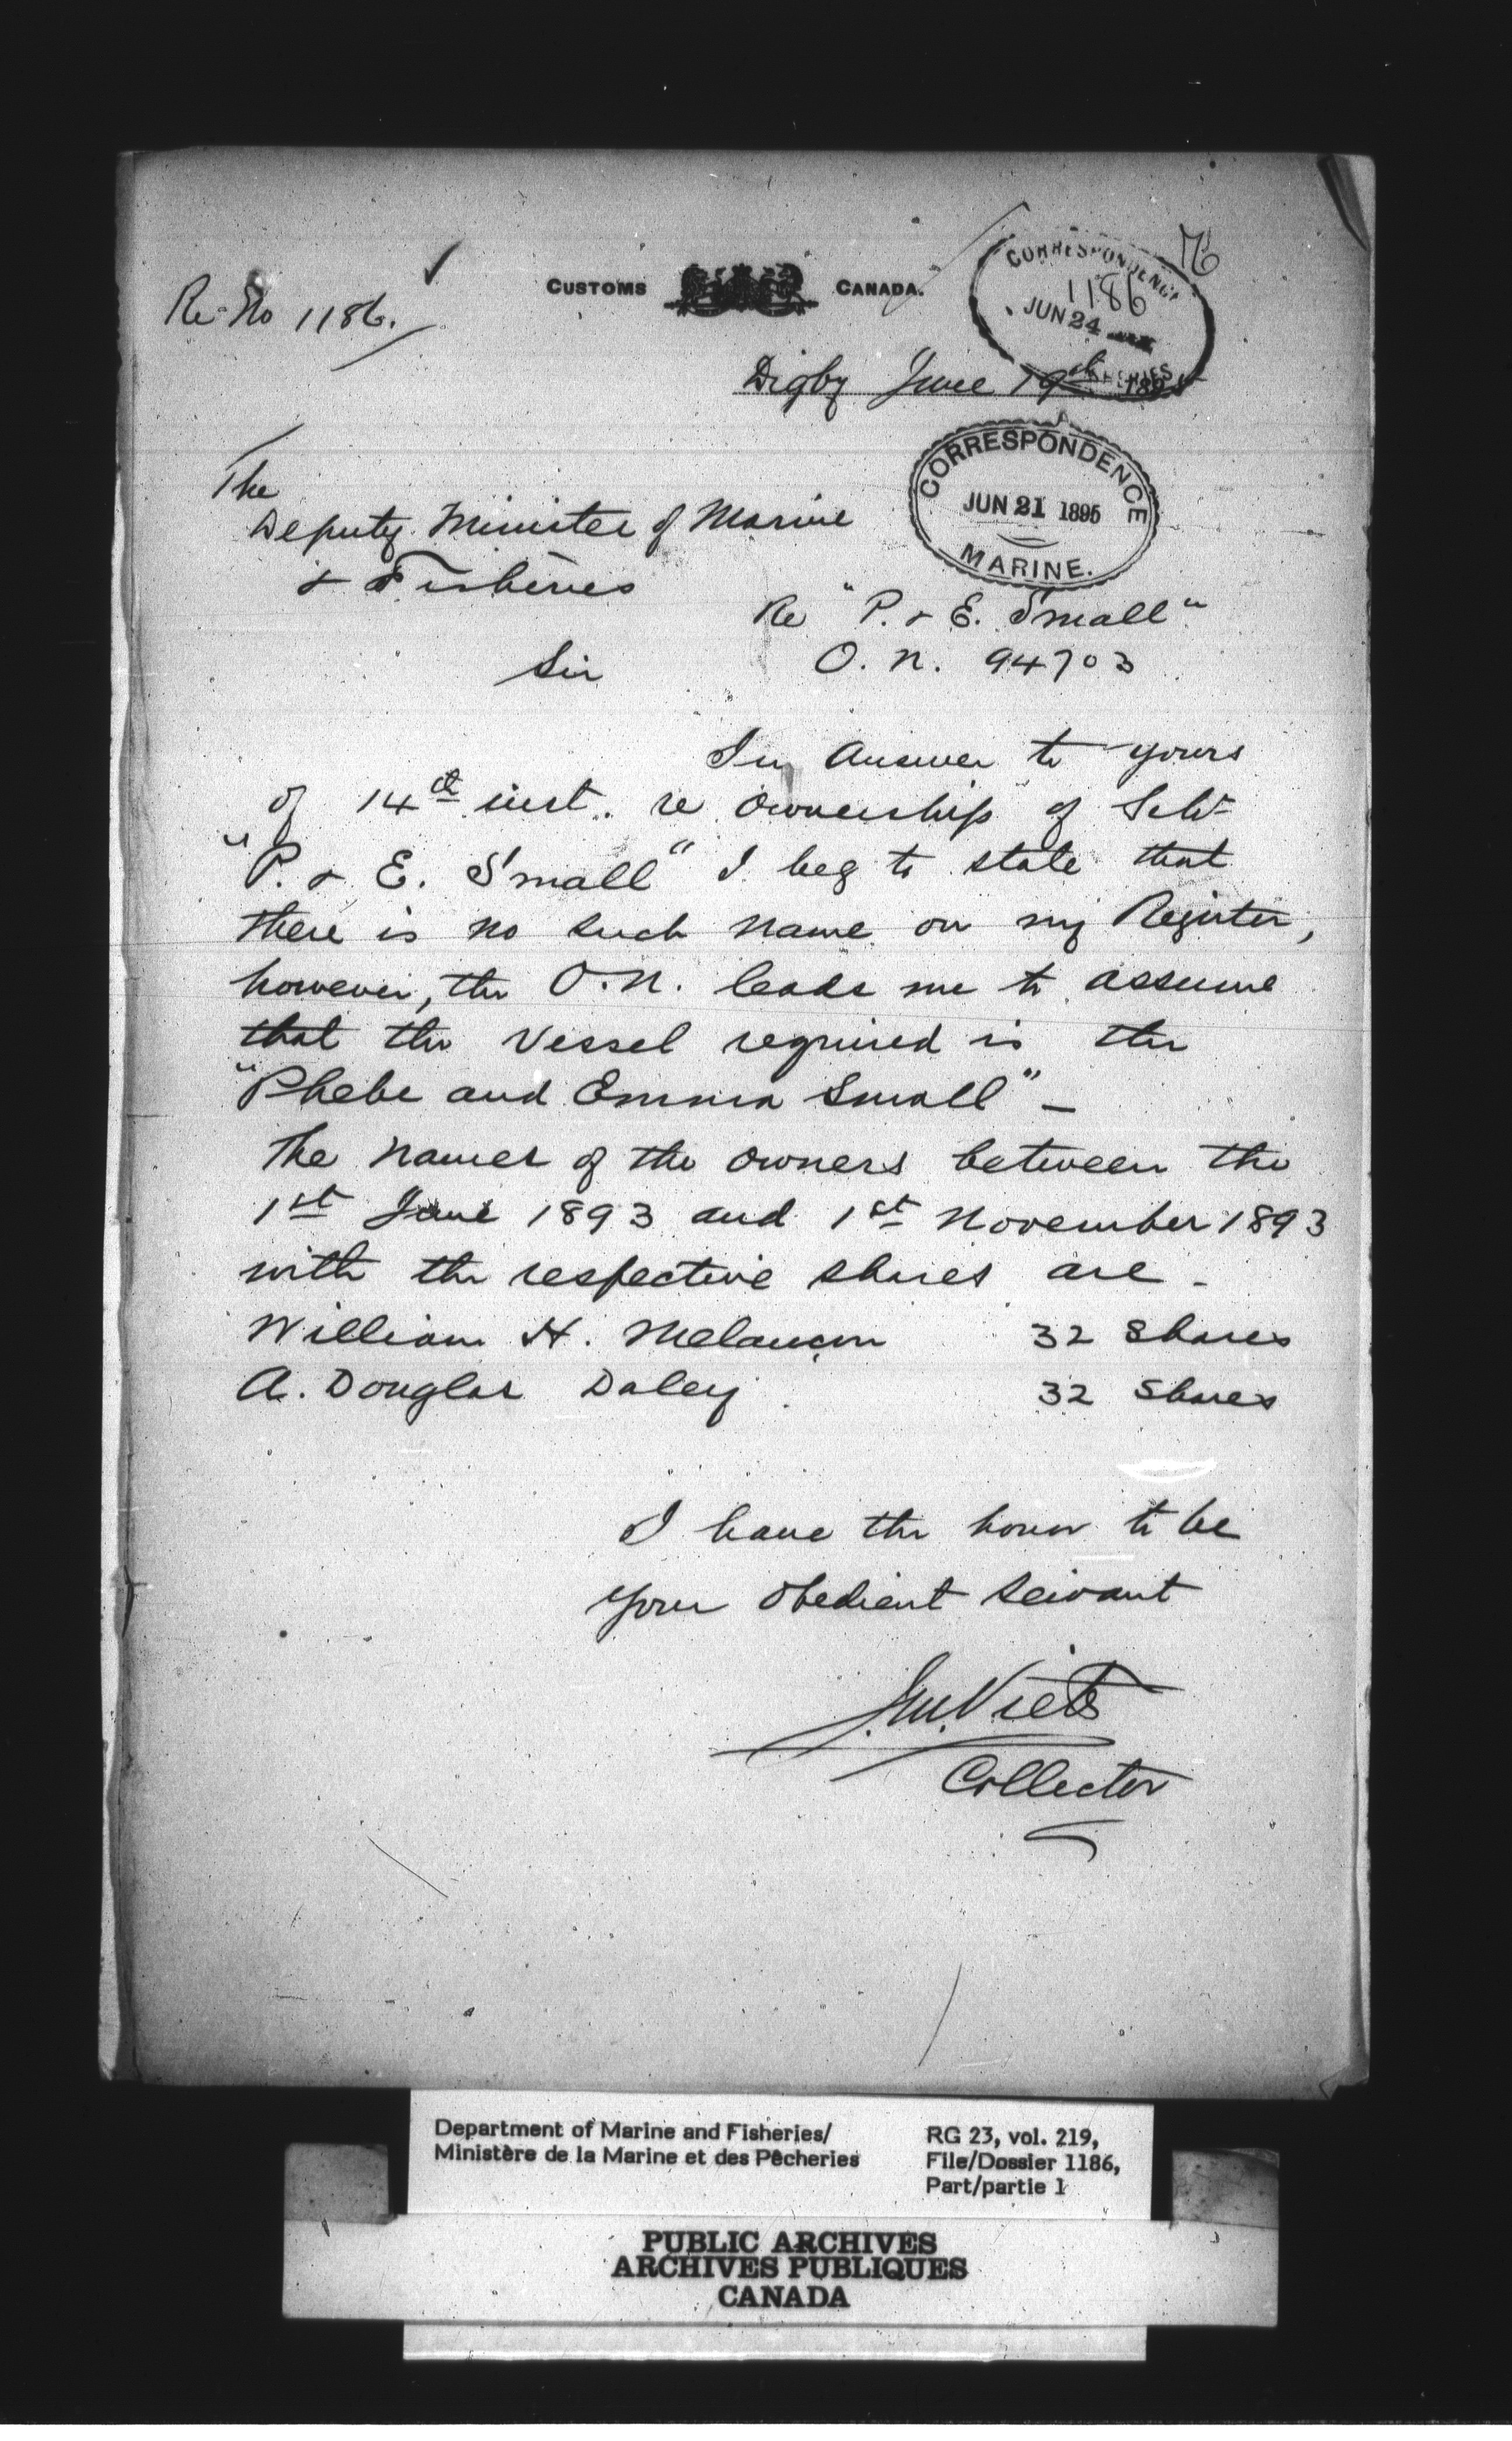 76
CORRESPONDENCE
1186
JUN 24
FISHERIES
CUSTOMS CANADA.
Re No 1186.
Digby June 19th 1895
The
Deputy Minister of Marine
& Fisheries
CORRESPONDENCE
JUN 21 1895
MARINE.
Re "P. & E. Small"
O. N. 94703
Sir
In answer to yours
of 14th inst. re ownership of Schr
"P. & E. Small" I beg to state that
there is no such name on my Register,
however, the O.N. leads me to assume
that the Vessel required is the
"Phebe and Emma Small" -
The names of the owners between the
1st June 1893 and 1st November 1893
with the respective shares are -
William H. Melançon 32 Shares
A. Douglas Daley 32 Shares
I have the honor to be
your obedient servant
J.M. Viets
Collector
Department of Marine and Fisheries/
Ministère de la Marine et des Pêcheries
RG 23, vol. 219,
File/Dossier 1186,
Part/partie 1
PUBLIC ARCHIVES
ARCHIVES PUBLIQUES
CANADA